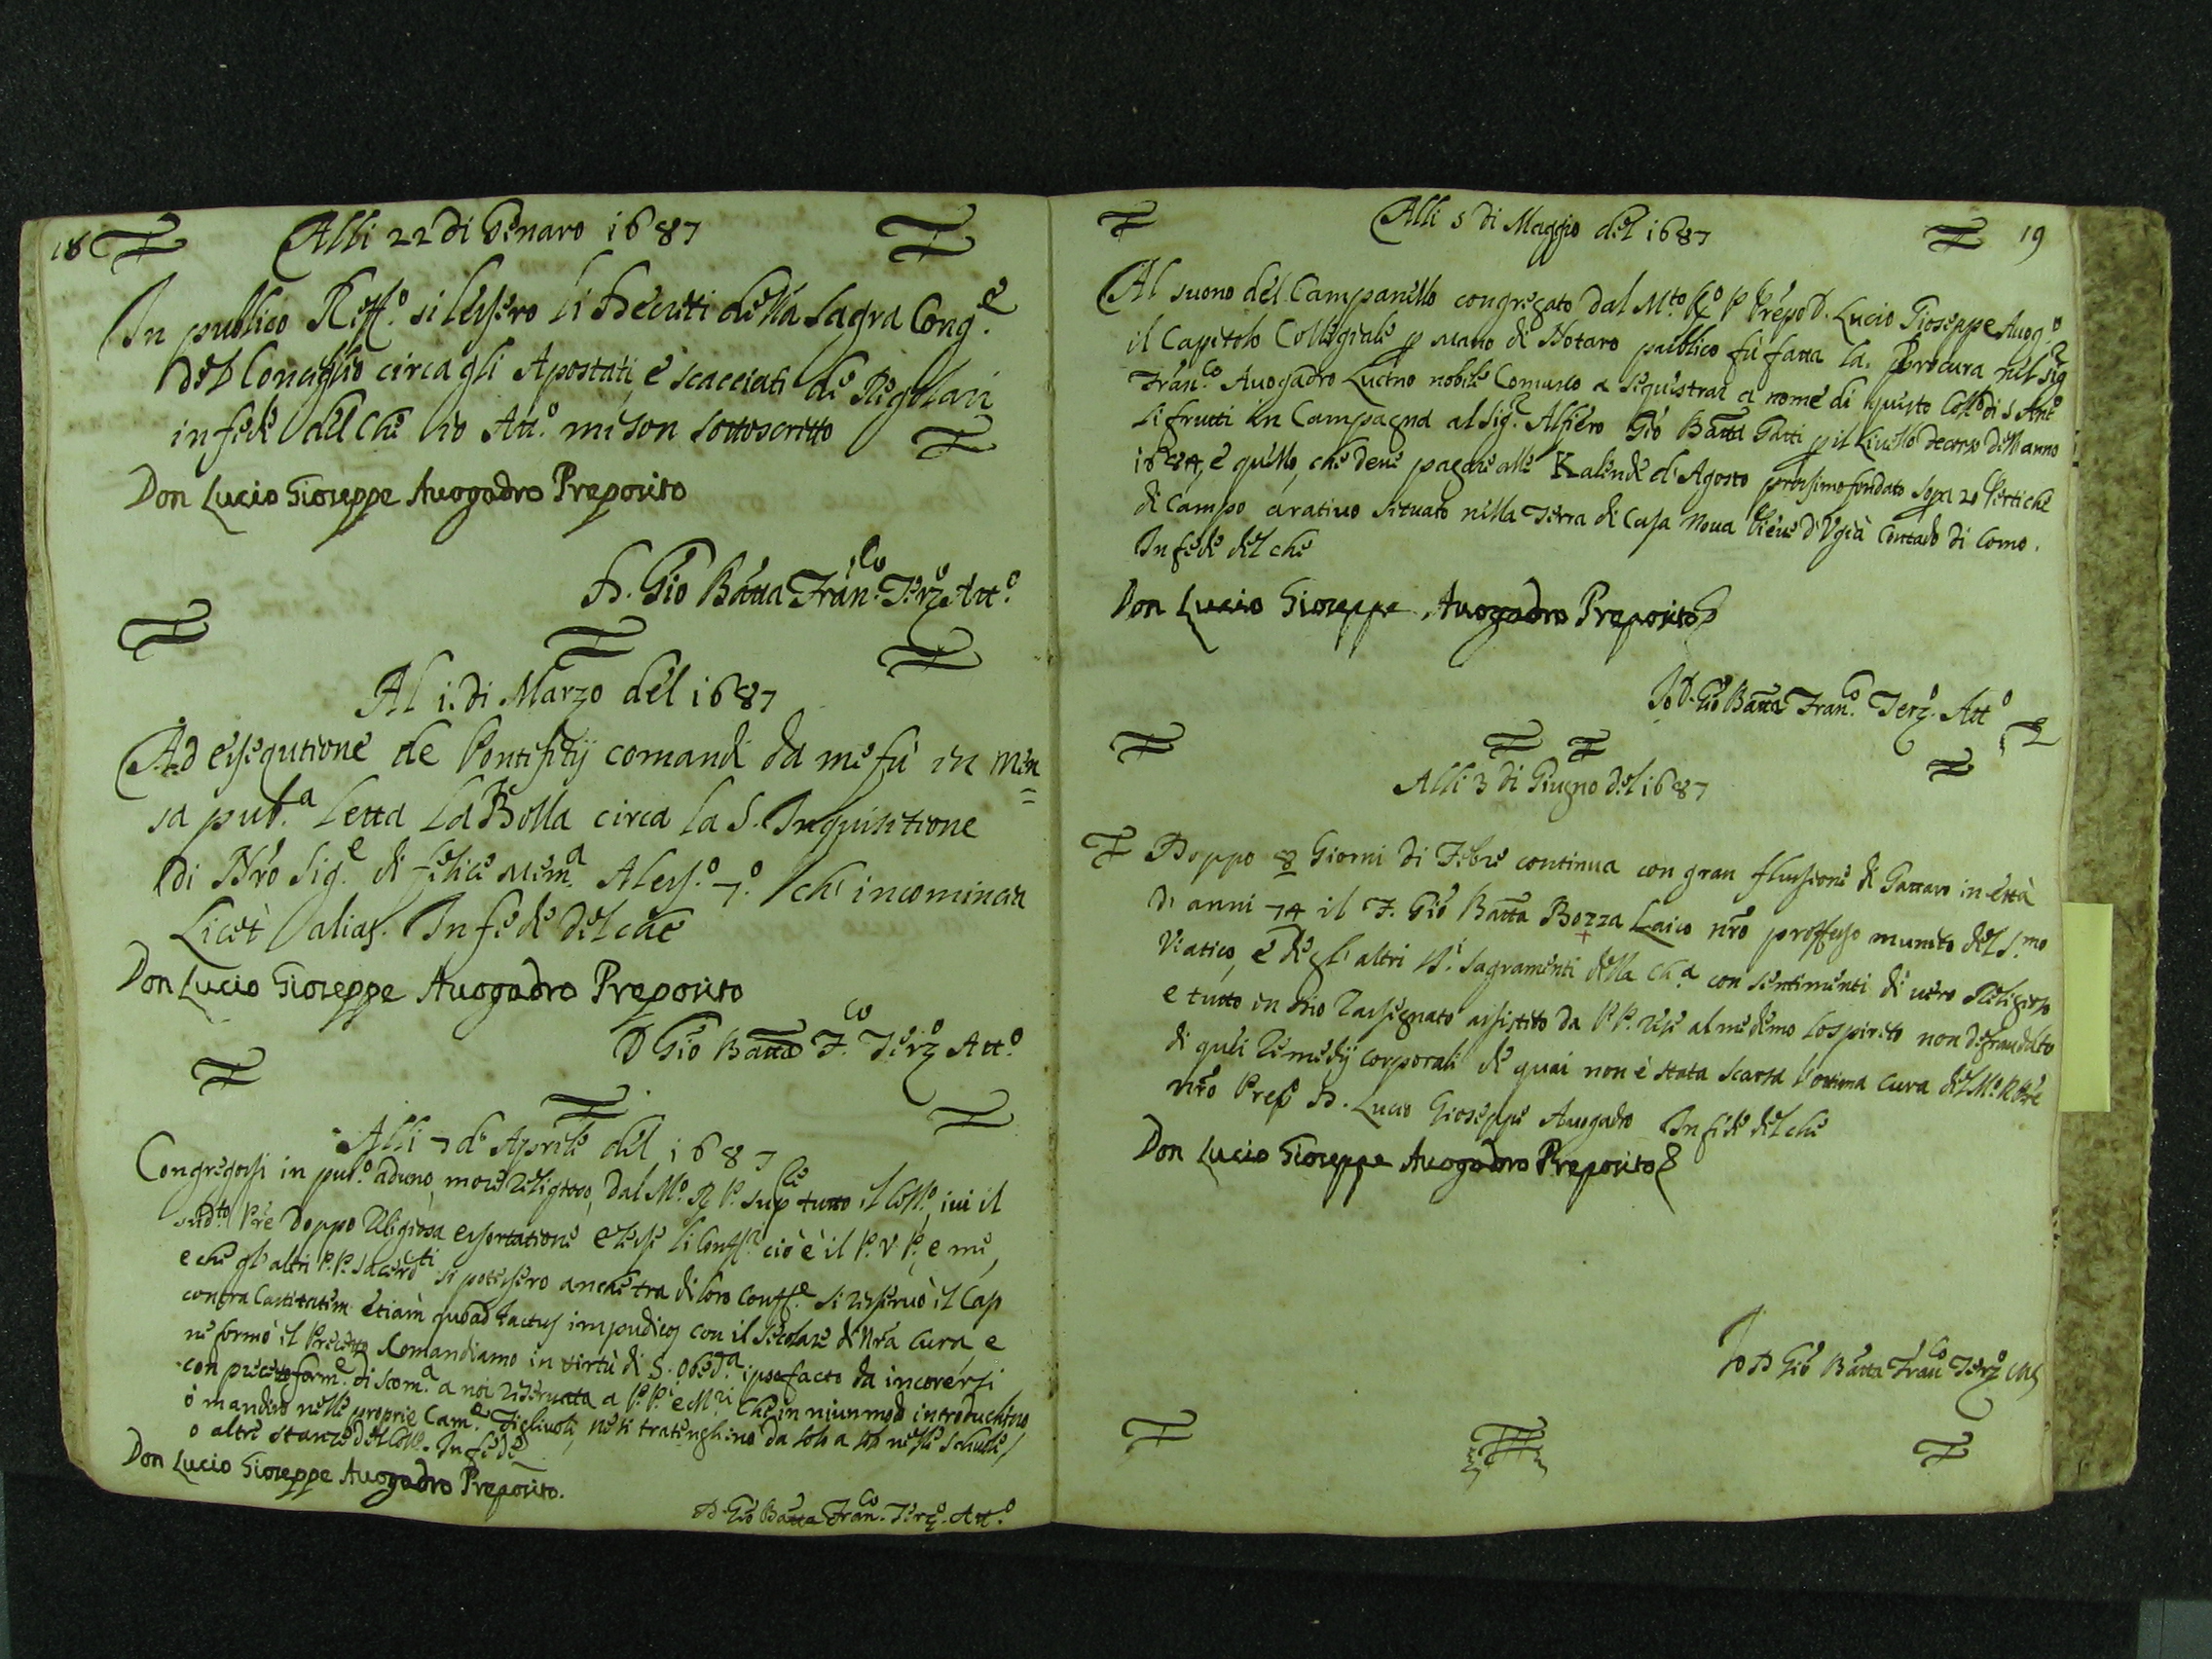 18 Alli 22 di Genaro 1687
In publico Reff.o si lessero li Decreti della Sagra Cong.e
del Conciglio circa gli Apostati, e scacciati de Regolari
in fede del che io Att.o mi son sottoscritto
Don Lucio Gioseppe Auogadro Preposito
D. Gio Batta Fran.co Terz.o Att.o
Al 1. di Marzo del 1687
Ad essequtione de Pontifitij comandi da me fù in men
sa pub.a letta la Bolla circa la S. Inquisitione
di Nro Sig.e di felice mem.a Aless.o 7.o che incomincia
Licet alias. In fede del che
Don Lucio Gioseppe Auogadro Preposito
D Gio Batta F.co Terz.o Att.o
Alli 7 di Aprile del 1687
Congregossi in pub.o aduno, more religioso, dal M.o R. P. Sup.re tutto il Coll.o, iui il
sud.to Pre doppo religiosa essortatione elesse li Conff.ri ciò è il P. V. P., e me,
e che gl'altri P.P. Sacerd.ti si potessero anche tra di loro conff.e si risseruò il Cap
contra Castitatem etiam quoad tactus impudicos con il secolare di Nra cura, e
ne formò il Precetto Comandiamo in virtù di S. Obed.a ipso facto da incorersi
con precetto form.e di scom.a a noi riseruatta a P.P.i e M.ri che in niun modo introduchino,
ò mandino nelle proprie Cam.e figliuoli, ne si tratenghino da soli a soli nelle schuole,
o altre stanze del Coll.o In fede
Don Lucio Gioseppe Auogadro Preposito.
D. Gio Batta Fran.co Terz.o Att.o
Alli 5 di Maggio del 1687 19
Al suono del Campanello congregato dal M.to R.o P Prepo D. Lucio Gioseppe Auog.o
il Capitolo Collegiale p mano di Notaro publico fù fatta la Procura nel Sig.r
Fran.co Auogadro Lucino nobile Comasco a sequestrar a nome di questo Coll.o di S Ant.o
li frutti in Campagna al Sig.r Alfiero Gio Batta Gatti p il Liuello decorso dell'anno
1684, e quello, che deue pagare alle Kalende d'Agosto prossimo fondato sopa 20 Pertiche
di Campo aratiuo situato nella Terra di Casa Noua Pieue d'Vgià Contado di Como.
In fede del che
Don Lucio Gioseppe Auogadro Preposito
Io D. Gio Batta Fran.co Terz.o Att.o
Alli 3 di Giugno del 1687
Doppo 8 Giorni di Febre continua con gran flussione di Cattaro in ettà
di anni 74 il F. Gio Batta Bozza Laico nro proffesso munito del S.mo
Viatico, e degl'altri S.ti Sagramenti della Ch.a con sentimenti di uero Religioso
e tutto in Dio rassegnato assistito da P.P. rese al medemo lo spirito non defraudato
di queli remedij corporali de quai non è stata scarsa l'ottima cura del M.o R Pre
nro Prep.o D. Lucio Gioseppe Auogadro In fede del che
Don Lucio Gioseppe Auogadro Preposito
Io D Gio Batta Fran.co Terz.o